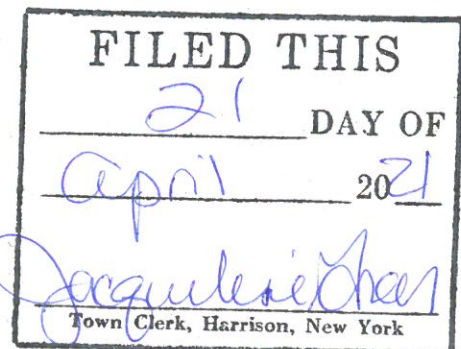 FILED THIS
21 DAY OF
April 2021
Jacqueline Greer
Town Clerk, Harrison, New York